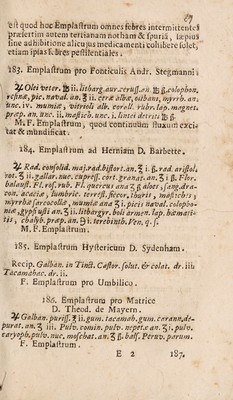 67
est quod hoc Emplastrum omnes febres intermittentes
præsertim autem tertianam notham & spuriã, sæpius
sine adhibitione alicujus medicamenti cohibere solet,
etiam ipsas febres pestilentiales.
183. Emplastrum pro Fonticulis Andr. Stegmanni.
♃ Olei veter. ℔ ii. litharg. aur. ceruss. an. ℔ ß. colophon.
resina, pic. naval. an. ℥ ii. cera alba, olibani, myrrh. an.
unc. iv. mumia, vitrioli alb. corall. rubr. lap. magnet.
prap. an. unc. ii. mastich. unc. i. lintei detriti ℔ ß.
M. F. Emplastrum, quod continuum fluxum exci-
tat & mundificat.
184. Emplastrum ad Herniam D. Barbette.
♃ Rad. consolid. maj. rad. bistort. an. ℥ i. ß. rad. aristol.
rot. ℥ ii. gallar. nuc. cupress. cort. granat. an. ℥ i ß. Flor.
balaust. Fl. ros. rub. Fl. quercus ana ℥ ß aloes, sang. dra-
con. acacia, lumbric. terrest. siccor. thuris, mastiches
myrrha sarcocolla, mumia ana ℥ i. picis naval. colopho-
nia, gypsi usti an. ℥ ii. lithargyr. boli armen. lap. hamati-
tis, chalyb. prap. an. ℥ ii. terebinth. Ven. q. s.
M. F. Emplastrum.
185. Emplastrum Hystericum D. Sydenham.
Recip. Galban. in Tinct. Castor. solut. & colat. dr. iii.
Tacamahac. dr. ii.
F. Emplastrum pro Umbilico.
186. Emplastrum pro Matrice
D. Theod. de Mayern.
♃ Galban. puriss. ℥ ii. gum. tacamah. gum. carann. de-
purat. an. ℥ iii. Pulv. comin. pulv. nepet. a an. ℥ i. pulv.
caryoph. pulv. nuc. moschat. an. ℥ ß. bals. Peruv. parum.
F. Emplastrum.
E 2 187.